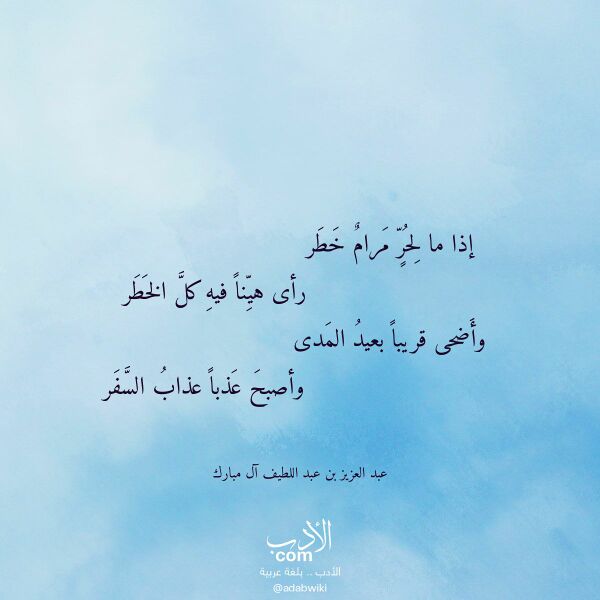 إذا ما لِحُرٍّ مَرامٌ خَطَر
رأى هيِّناً فيهِ كلَّ الخَطَر
وأَضحى قريباً بعيدُ المَدى
وأصبحَ عَذباً عذابُ السَّفَر
عبد العزيز بن عبد اللطيف آل مبارك
الأدب
com
الأدب .. بلغة عربية
@adabwiki